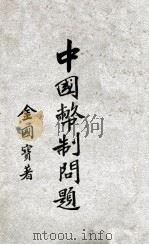 中國幣制問題
金國寶著
www.mtoou.info